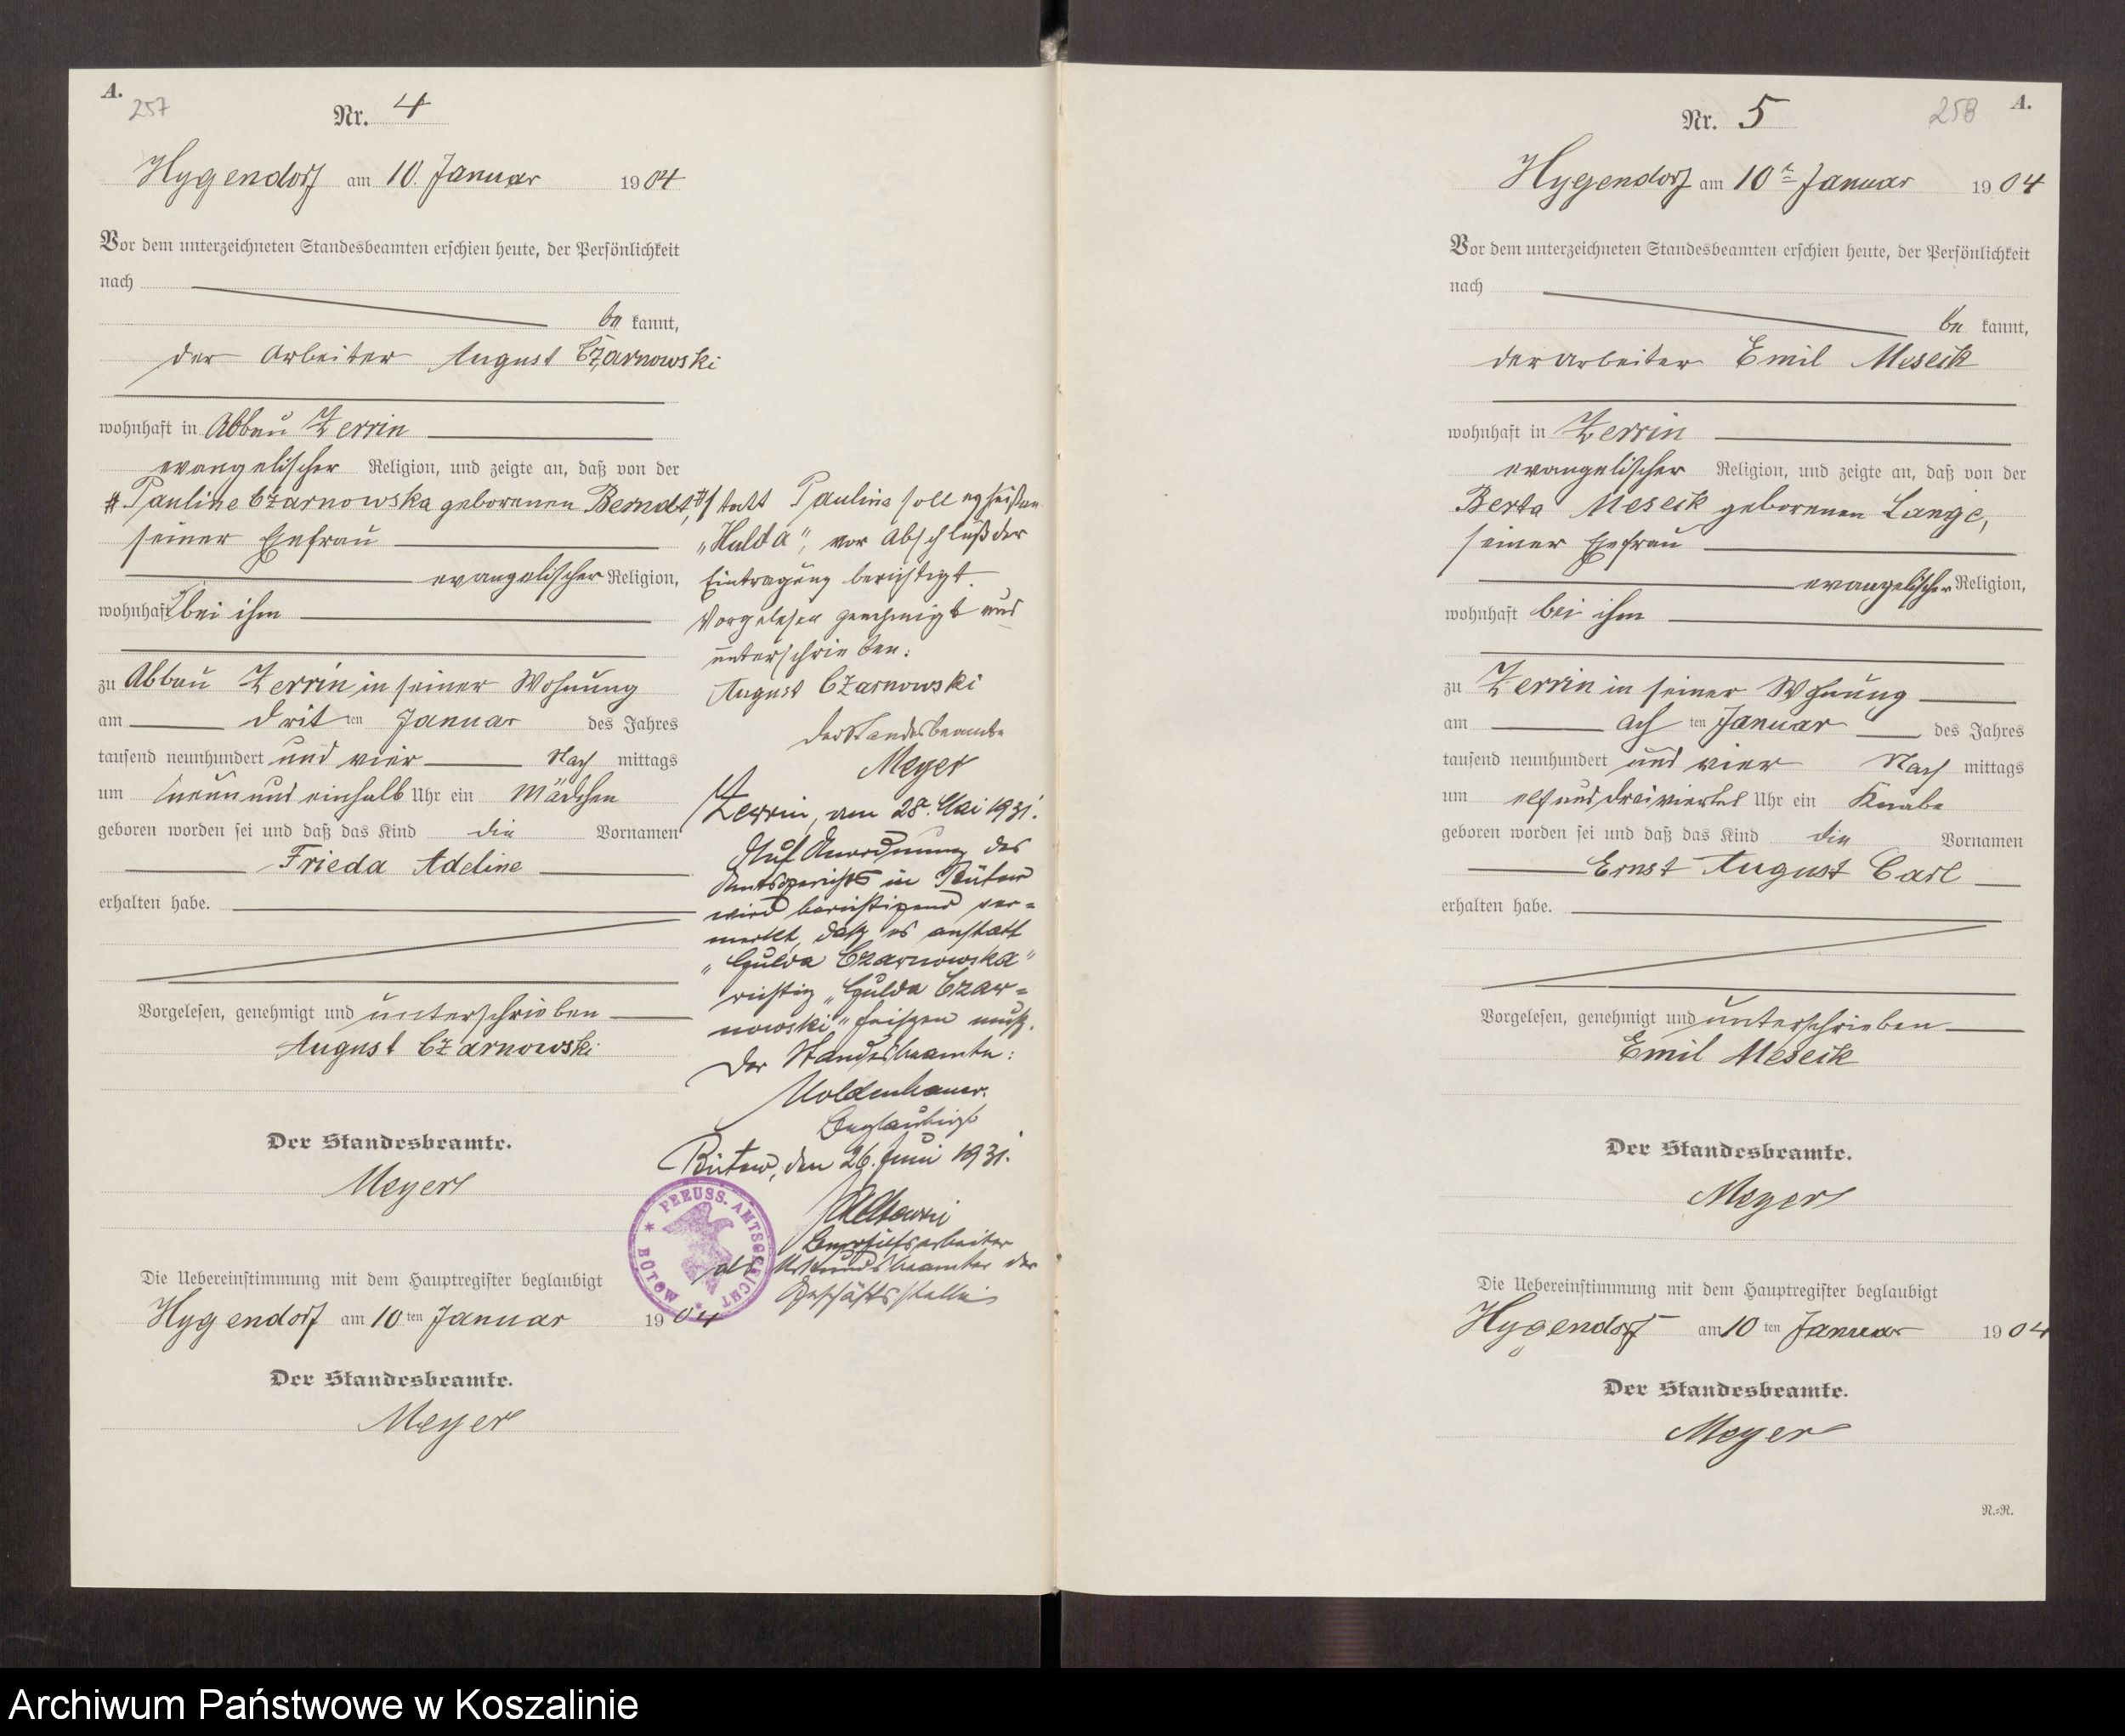 A.
257
Nr. 4
Hygendorf am 10. Januar 1904
Vor dem unterzeichneten Standesbeamten erschien heute, der Persönlichkeit
nach
be kannt,
der Arbeiter August Czarnowski
wohnhaft in Abbau Zerrin
evangelischer Religion, und zeigte an, daß von der
# Pauline Czarnowska geborenen Berndt, #
seiner Ehefrau
evangelischer Religion,
wohnhaft bei ihm
zu Abbau Zerrin in seiner Wohnung
am drit ten Januar des Jahres
tausend neunhundert und vier Nach mittags
um neun und einhalb Uhr ein Mädchen
geboren worden sei und daß das Kind die Vornamen
Frieda Adeline
erhalten habe.
Vorgelesen, genehmigt und unterschrieben
August Czarnowski
Der Standesbeamte.
Meyer
Die Uebereinstimmung mit dem Hauptregister beglaubigt
Hygendorf am 10 ten Januar 1904
Der Standesbeamte.
Meyer
# statt Pauline soll es heißen
„Hulda", vor Abschluß der
Eintragung berichtigt.
Vorgelesen genehmigt und
unterschrieben:
August Czarnowski
der Standesbeamte
Meyer
Zerrin, am 28. Mai 1931.
Auf Anordnung des
Amtsgerichts in Bütow
wird berichtigend ver=
merkt, daß es anstatt
„Hulda Czarnowska"
richtig „Hulda Czar=
nowski" heißen muß.
Der Standesbeamte:
Moldenhauer.
Beglaubigt
Bütow, den 26. Juni 1931.
als Urkundsbeamter der
Geschäftsstelle
PREUSS. AMTSGERICHT * BÜTOW *
Nr. 5
258
A.
Hygendorf am 10ten Januar 1904
Vor dem unterzeichneten Standesbeamten erschien heute, der Persönlichkeit
nach
be kannt,
der Arbeiter Emil Meseck
wohnhaft in Zerrin
evangelischer Religion, und zeigte an, daß von der
Berta Meseck geborenen Lange,
seiner Ehefrau
evangelischer Religion,
wohnhaft bei ihm
zu Zerrin in seiner Wohnung
am ach ten Januar des Jahres
tausend neunhundert und vier Nach mittags
um elf und dreiviertel Uhr ein Knabe
geboren worden sei und daß das Kind die Vornamen
Ernst August Carl
erhalten habe.
Vorgelesen, genehmigt und unterschrieben
Emil Meseck
Der Standesbeamte.
Meyer
Die Uebereinstimmung mit dem Hauptregister beglaubigt
Hygendorf am 10 ten Januar 1904
Der Standesbeamte.
Meyer
N.=R.
Archiwum Państwowe w Koszalinie